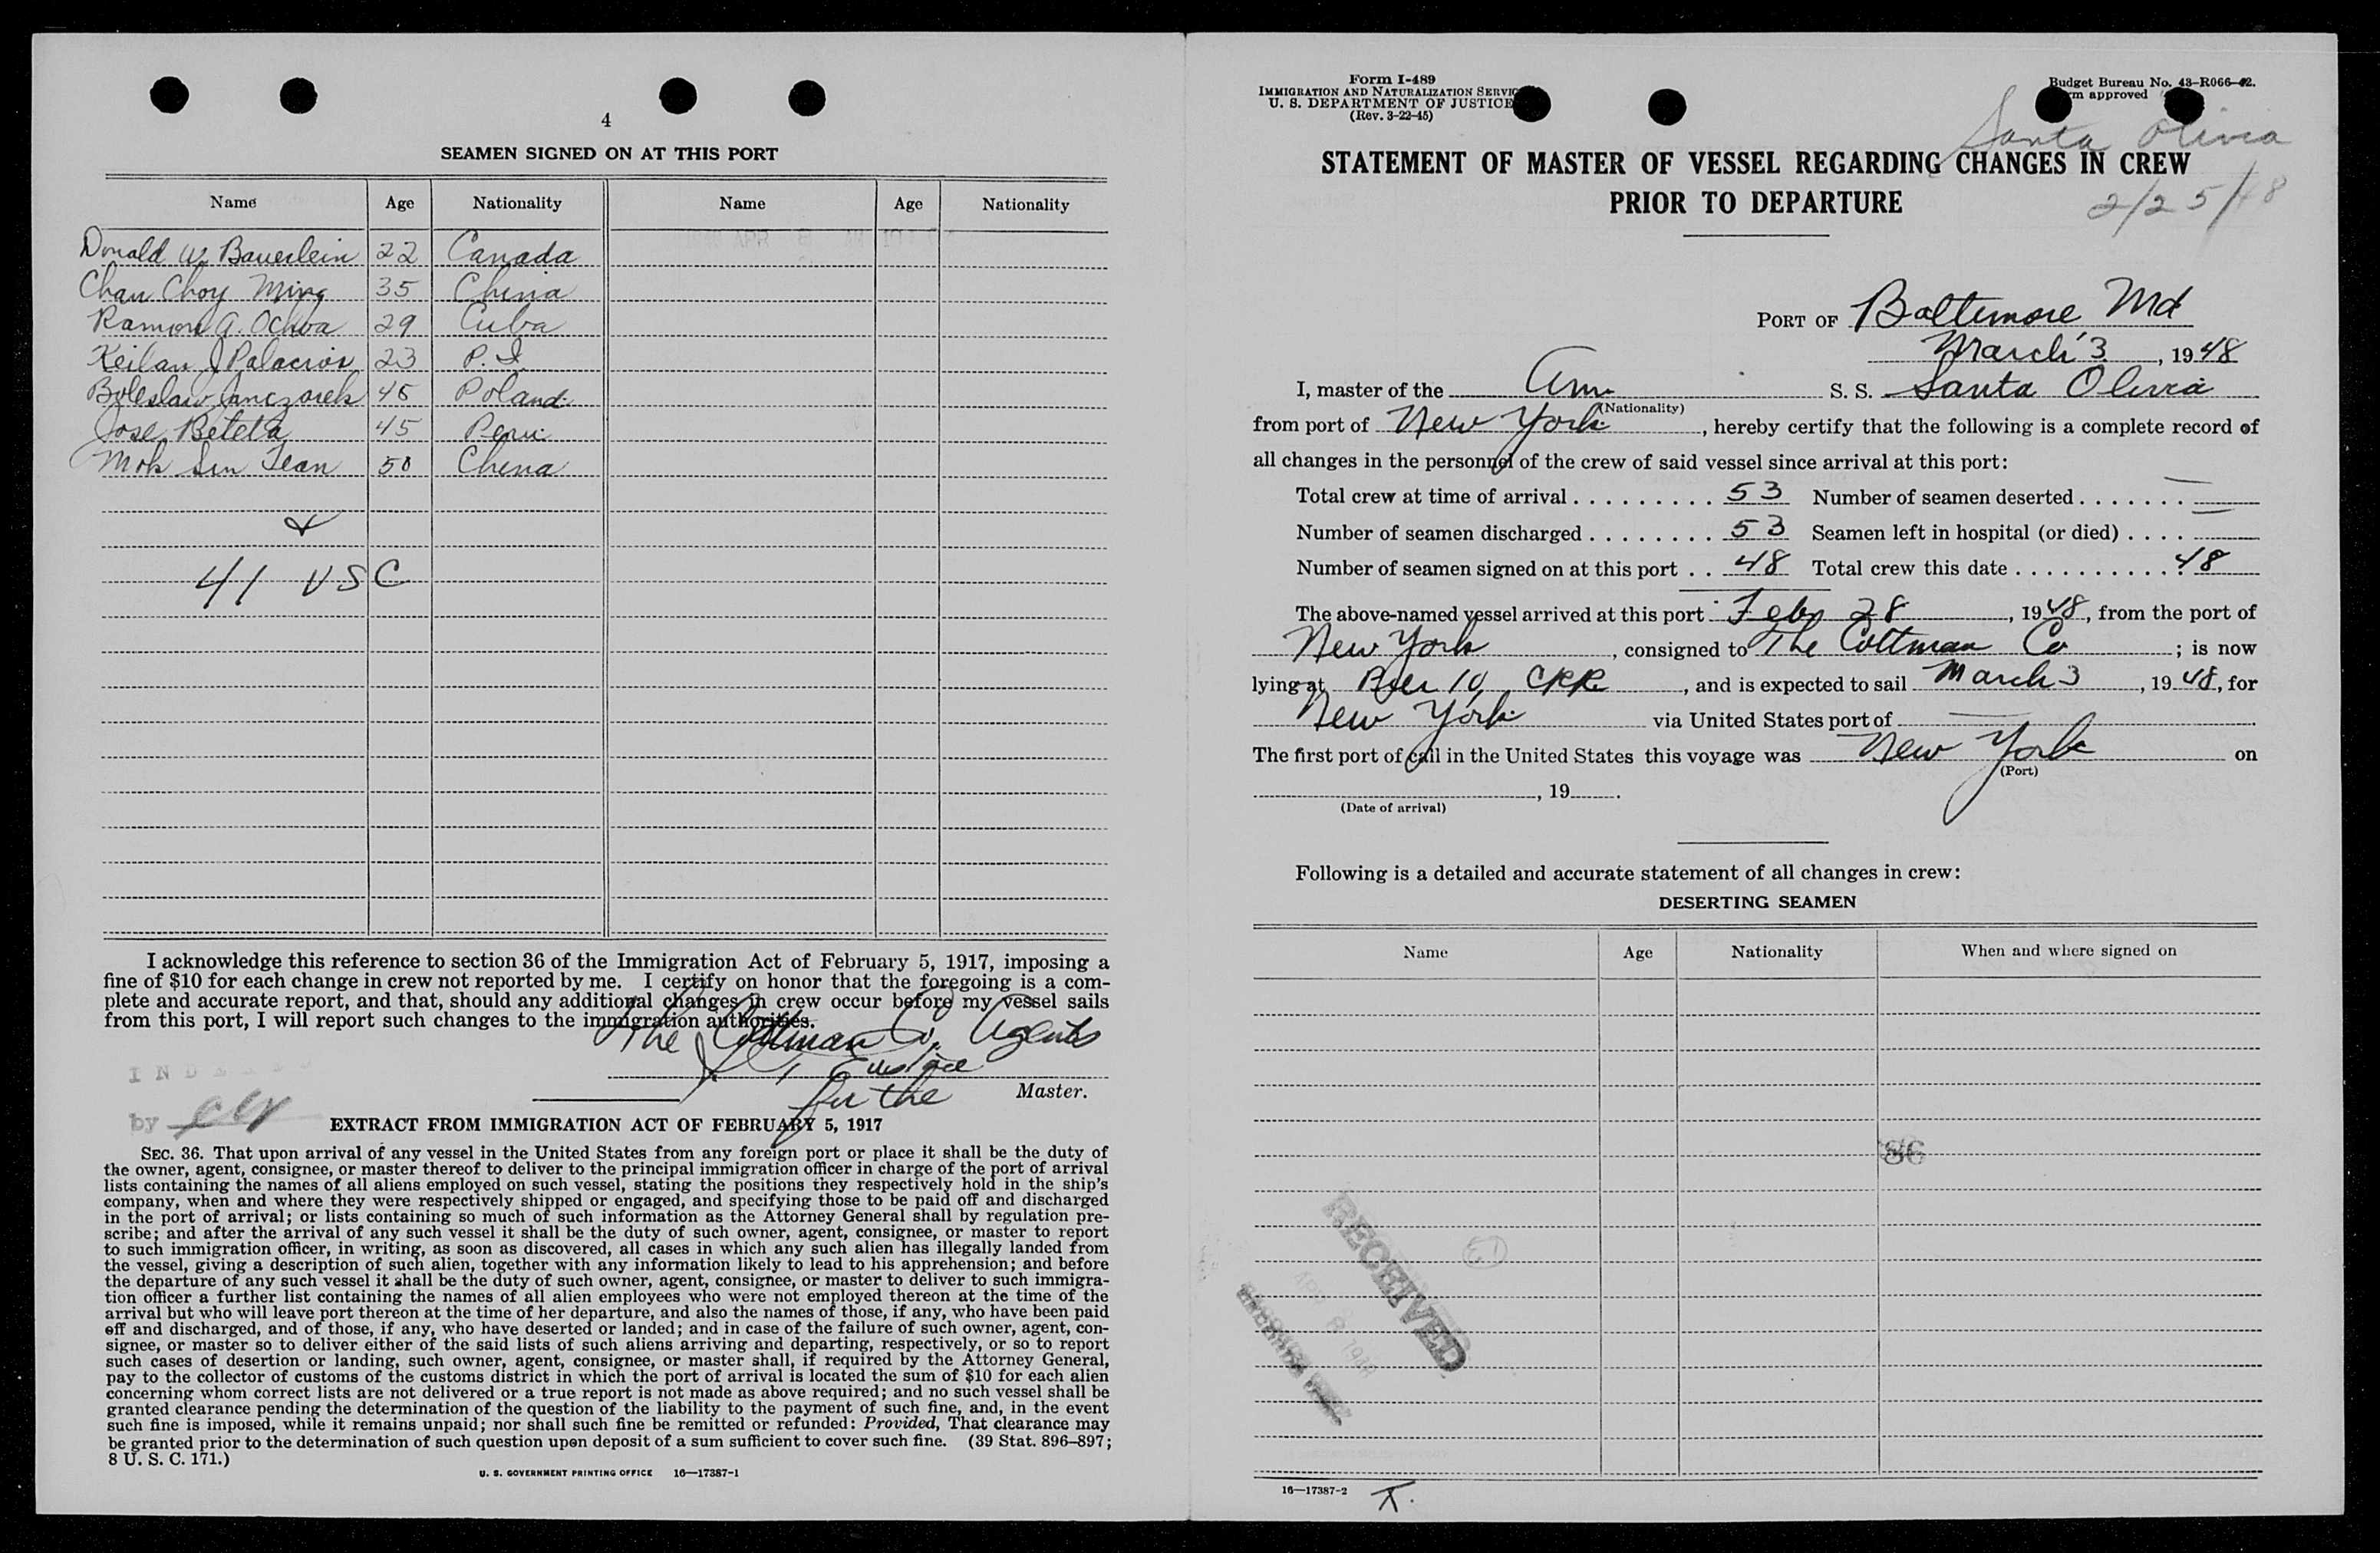 4
SEAMEN SIGNED ON AT THIS PORT
Name Age Nationality Name Age Nationality
Donald W. Bauerlein 22 Canada
Chan Choy Ming 35 China
Ramon A. Ochoa 29 Cuba
Keilan J Palacios 23 P.I.
Boleslaw Janczorek 45 Poland
Jose Beteta 45 Peru
Mok Sin Tean 50 China
&
41 USC
I acknowledge this reference to section 36 of the Immigration Act of February 5, 1917, imposing a
fine of $10 for each change in crew not reported by me. I certify on honor that the foregoing is a com-
plete and accurate report, and that, should any additional changes in crew occur before my vessel sails
from this port, I will report such changes to the immigration authorities.
The Cottman Co, Agents
for the Master.
by
EXTRACT FROM IMMIGRATION ACT OF FEBRUARY 5, 1917
SEC. 36. That upon arrival of any vessel in the United States from any foreign port or place it shall be the duty of
the owner, agent, consignee, or master thereof to deliver to the principal immigration officer in charge of the port of arrival
lists containing the names of all aliens employed on such vessel, stating the positions they respectively hold in the ship's
company, when and where they were respectively shipped or engaged, and specifying those to be paid off and discharged
in the port of arrival; or lists containing so much of such information as the Attorney General shall by regulation pre-
scribe; and after the arrival of any such vessel it shall be the duty of such owner, agent, consignee, or master to report
to such immigration officer, in writing, as soon as discovered, all cases in which any such alien has illegally landed from
the vessel, giving a description of such alien, together with any information likely to lead to his apprehension; and before
the departure of any such vessel it shall be the duty of such owner, agent, consignee, or master to deliver to such immigra-
tion officer a further list containing the names of all alien employees who were not employed thereon at the time of the
arrival but who will leave port thereon at the time of her departure, and also the names of those, if any, who have been paid
off and discharged, and of those, if any, who have deserted or landed; and in case of the failure of such owner, agent, con-
signee, or master so to deliver either of the said lists of such aliens arriving and departing, respectively, or so to report
such cases of desertion or landing, such owner, agent, consignee, or master shall, if required by the Attorney General,
pay to the collector of customs of the customs district in which the port of arrival is located the sum of $10 for each alien
concerning whom correct lists are not delivered or a true report is not made as above required; and no such vessel shall be
granted clearance pending the determination of the question of the liability to the payment of such fine, and, in the event
such fine is imposed, while it remains unpaid; nor shall such fine be remitted or refunded: Provided, That clearance may
be granted prior to the determination of such question upon deposit of a sum sufficient to cover such fine. (39 Stat. 896–897;
8 U. S. C. 171.)
U. S. GOVERNMENT PRINTING OFFICE 16—17387-1
Form I-489
IMMIGRATION AND NATURALIZATION SERVIC
U. S. DEPARTMENT OF JUSTICE
(Rev. 3-22-45)
Budget Bureau No. 43-R066-42.
m approved
Santa Olivia
STATEMENT OF MASTER OF VESSEL REGARDING CHANGES IN CREW
PRIOR TO DEPARTURE
2/25/48
PORT OF Baltimore Md
March 3, 1948
I, master of the Am S. S. Santa Olivia
(Nationality)
from port of New York, hereby certify that the following is a complete record of
all changes in the personnel of the crew of said vessel since arrival at this port:
Total crew at time of arrival 53 Number of seamen deserted —
Number of seamen discharged 53 Seamen left in hospital (or died) —
Number of seamen signed on at this port 48 Total crew this date 48
The above-named vessel arrived at this port Feby 28, 1948, from the port of
New York, consigned to The Cottman Co; is now
lying at Pier 10, CRR, and is expected to sail March 3, 1948, for
New York via United States port of —
The first port of call in the United States this voyage was New York on
(Port)
, 19 .
(Date of arrival)
Following is a detailed and accurate statement of all changes in crew:
DESERTING SEAMEN
Name Age Nationality When and where signed on
86
RECEIVED
16—17387-2
K.